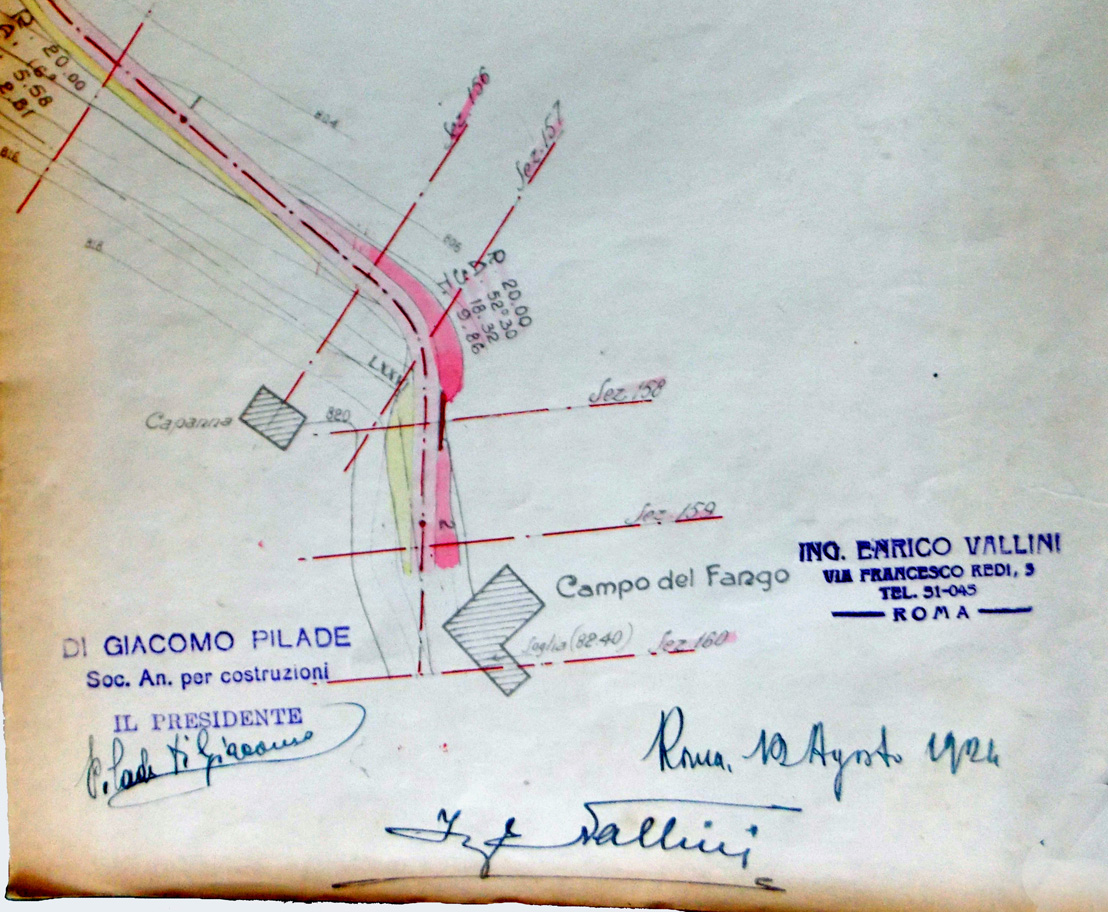 R. 20.00
A.
S. 5.58
2.81
816
818
804
806
Sez. 156
Sez. 157
R. 20.00
A. 52°30
S. 18.32
T. 9.86
LXXI
Capanna
820
Sez. 158
Sez. 159
2
Campo del Fango
Soglia (82·40)
Sez. 160
ING. ENRICO VALLINI
VIA FRANCESCO REDI, 3
TEL. 31-045
ROMA
DI GIACOMO PILADE
Soc. An. per costruzioni
IL PRESIDENTE
Pilade Di Giacomo
Roma, 12 Agosto 1924
Ing E Vallini